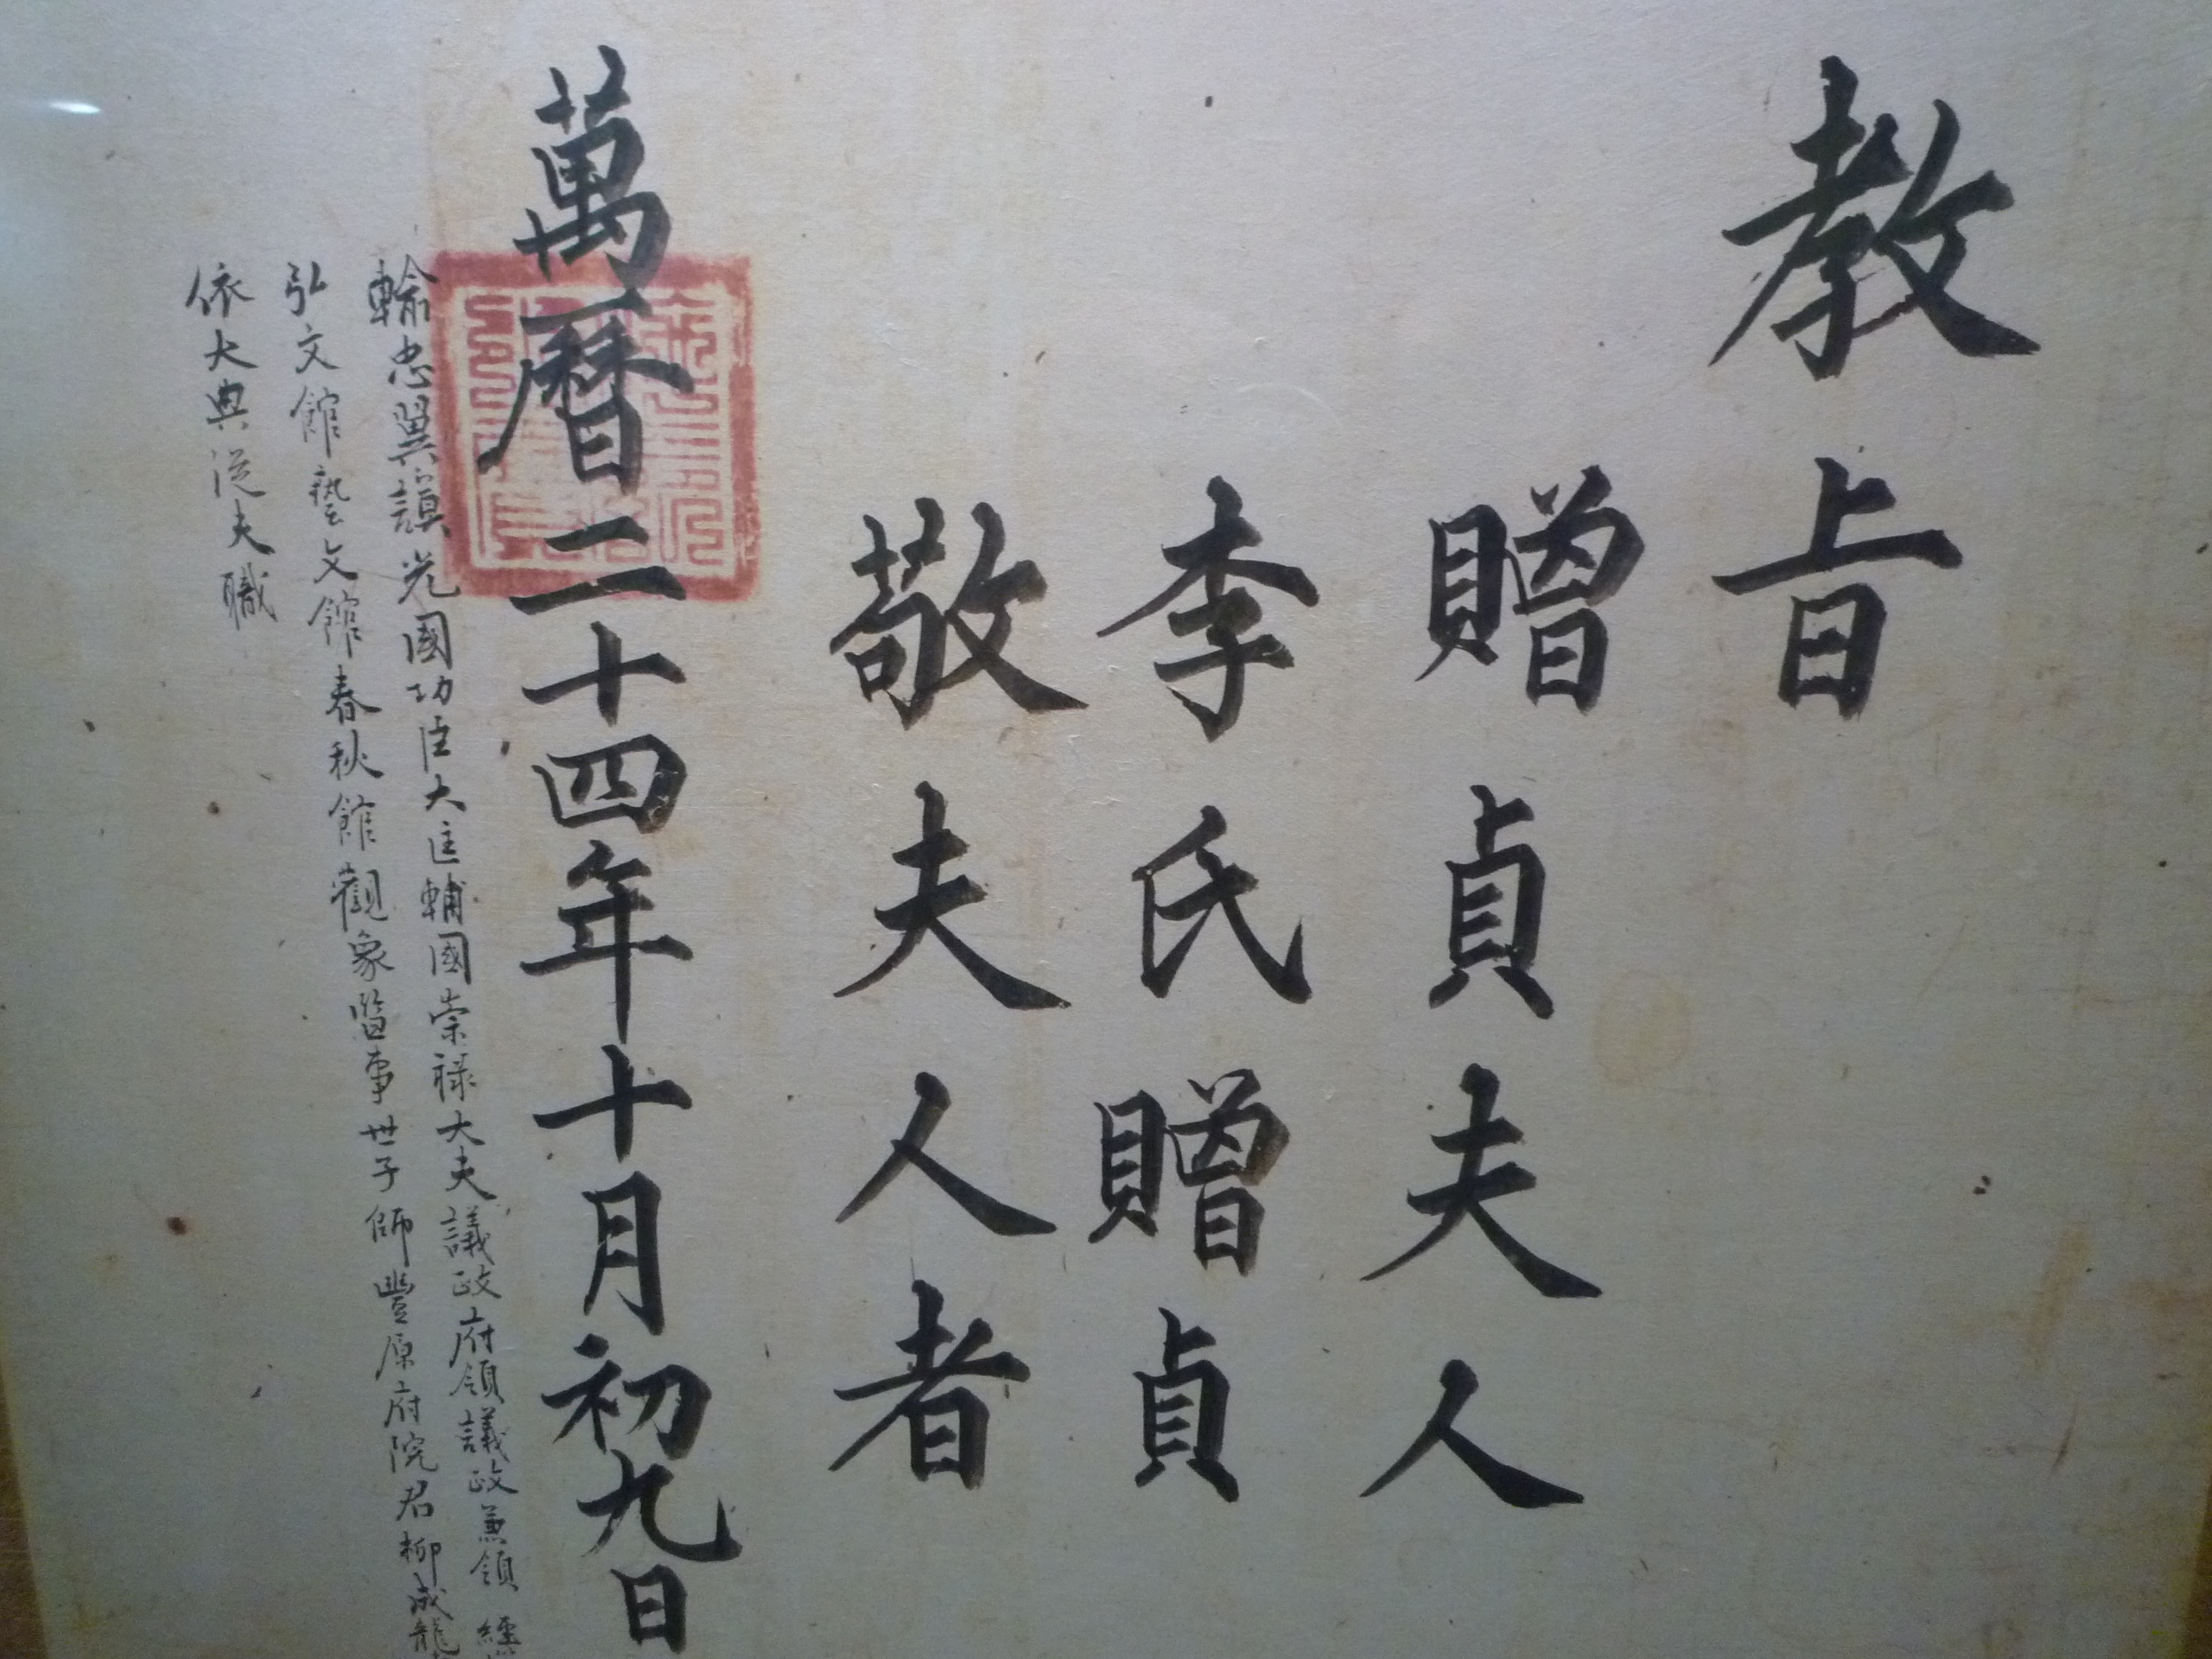 教旨
贈貞夫人
李氏贈貞
敬夫人者
萬曆二十四年十月初九日
輸忠翼謨光國功臣大匡輔國崇祿大夫議政府領議政兼領經
弘文館藝文館春秋館觀象監事世子師豐原府院君柳成龍
依大典從夫職